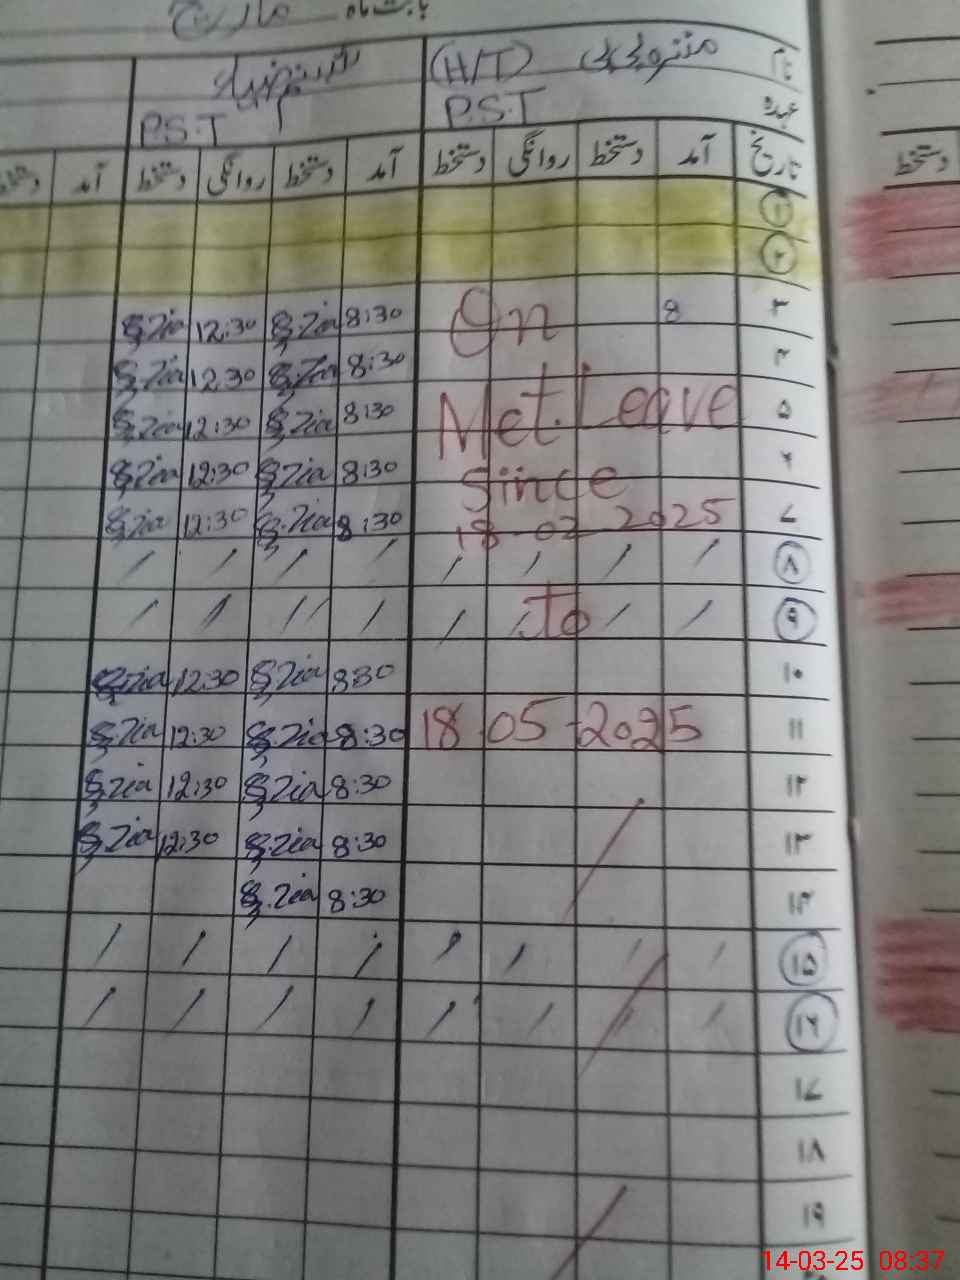 بابت ماه مارچ
نام (H/T)
عہدہ P.S.T P.S.T
تاریخ آمد دستخط روانگی دستخط آمد دستخط روانگی دستخط آمد دستخط
۱
۲
۳ 8 On 8:30 S.Zia 12:30 S.Zia
۴ 8:30 S.Zia 12:30 S.Zia
۵ Met. Leave 8:30 S.Zia 12:30 S.Zia
۶ Since 8:30 S.Zia 12:30 S.Zia
۷ 18-02-2025 8:30 S.Zia 12:30 S.Zia
۸
۹ To
۱۰ 8:30 S.Zia 12:30 S.Zia
۱۱ 18-05-2025 8:30 S.Zia 12:30 S.Zia
۱۲ 8:30 S.Zia 12:30 S.Zia
۱۳ 8:30 S.Zia 12:30 S.Zia
۱۴ 8:30 S.Zia
۱۵
۱۶
۱۷
۱۸
۱۹
دستخط
14-03-25 08:37